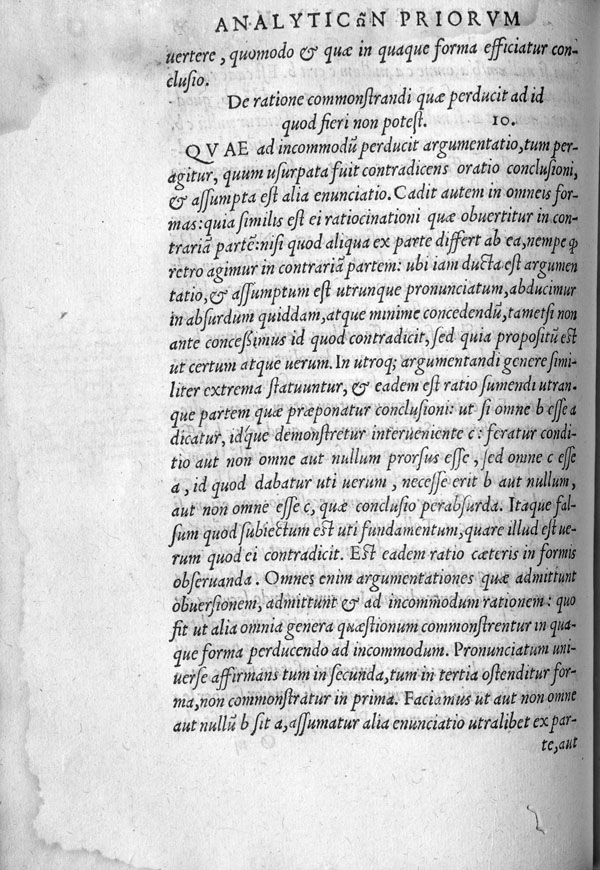 ANALYTICωN PRIORVM
uertere, quomodo & quæ in quaque forma efficiatur con-
clusio.
De ratione commonstrandi quæ perducit ad id
quod fieri non potest. 10.
QVAE ad incommodū perducit argumentatio, tum per-
agitur, quum usurpata fuit contradicens oratio conclusioni,
& assumpta est alia enunciatio. Cadit autem in omneis for-
mas: quia similis est ei ratiocinationi quæ obuertitur in con-
trariā partē: nisi quod aliqua ex parte differt ab ea, nempe ꝙ
retro agimur in contrariā partem: ubi iam ducta est argumen
tatio, & assumptum est utrunque pronunciatum, abducimur
in absurdum quiddam, atque minime concedendū, tametsi non
ante concessimus id quod contradicit, sed quia propositū est
ut certum atque uerum. In utroq; argumentandi genere simi-
liter extrema statuuntur, & eadem est ratio sumendi utran-
que partem quæ præponatur conclusioni: ut si omne b esse a
dicatur, id'que demonstretur interueniente c: feratur condi-
tio aut non omne aut nullum prorsus esse, sed omne c esse
a, id quod dabatur uti uerum, necesse erit b aut nullum,
aut non omne esse c, quæ conclusio perabsurda. Itaque fal-
sum quod subiectum est uti fundamentum, quare illud est ue-
rum quod ei contradicit. Est eadem ratio cæteris in formis
obseruanda. Omnes enim argumentationes quæ admittunt
obuersionem, admittunt & ad incommodum rationem: quo
fit ut alia omnia genera quæstionum commonstrentur in qua-
que forma perducendo ad incommodum. Pronunciatum uni-
uerse affirmans tum in secunda, tum in tertia ostenditur for-
ma, non commonstratur in prima. Faciamus ut aut non omne
aut nullū b sit a, assumatur alia enunciatio utralibet ex par-
te, aut